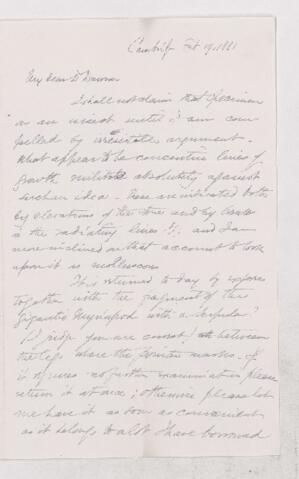 Cambridge Feb 19, 1881
My dear Dr Dawson
I shall not claim that specimen
as an insect until I am com
pelled by irresistible argument.
What appear to be concentric lines of
growth, militate absolutely against
such an idea. These are indicated both
by elevations of the and by bends
in the radiating lines and I am
more inclined on that account to look
upon it as molluscan
This is returned to day by express
together with the fragment of the
gigantic Myriapod with a
I judge you are correct between
the legs where the marks. If
it requires no further examination please
return it at once; otherwise please let
me have it as soon as convenient
as it belongs to a lot I have borrowed